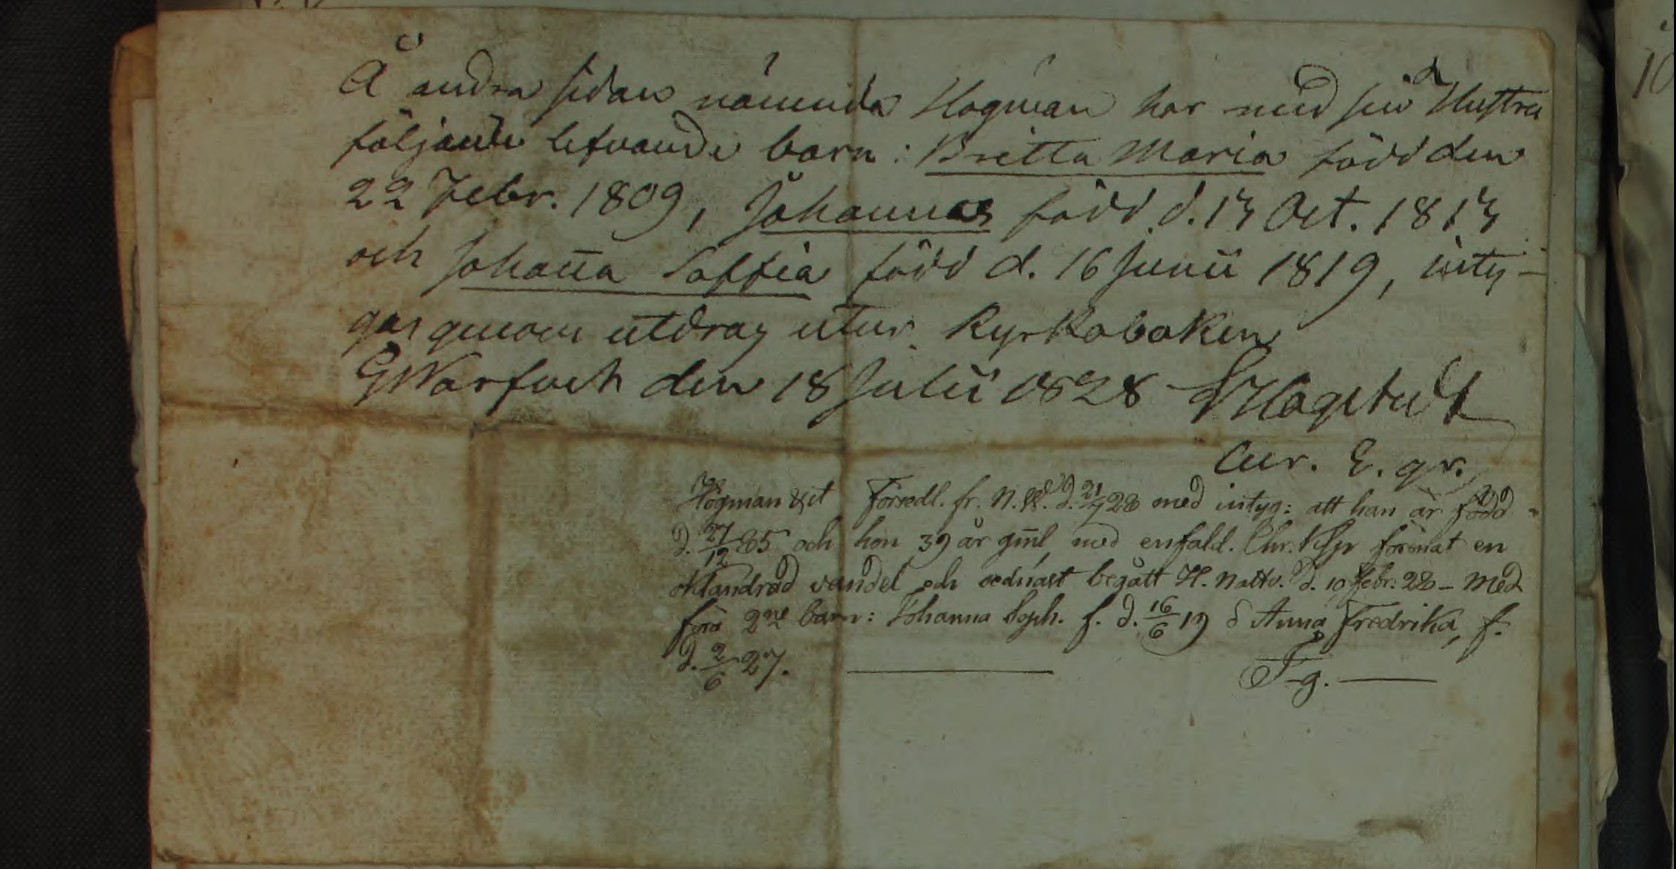 Å andra sidan nämnda Högman har med sin Hustru
följande lefvande barn: Britta Maria född den
22 Febr. 1809, Johannes född d. 13 Oct. 1813
och Johan̄a Soffia född d. 16 Junii 1819, inty-
gas genom utdrag utur Kyrkoboken
den 18 Julii 1828
Högman & Försedl. fr. N. d. 21/7 28 med intyg: att han är född
d. 27/12 85 och hon 39 år gm̄l med enfald. Chr. förenat en
vandel och sednast begått H. Nattv. d. 10 Febr. 28 - Med
2ne barn: Johanna Soph. f. d. 16/6 19 & Anna Fredrika, f.
d. 2/6 27.